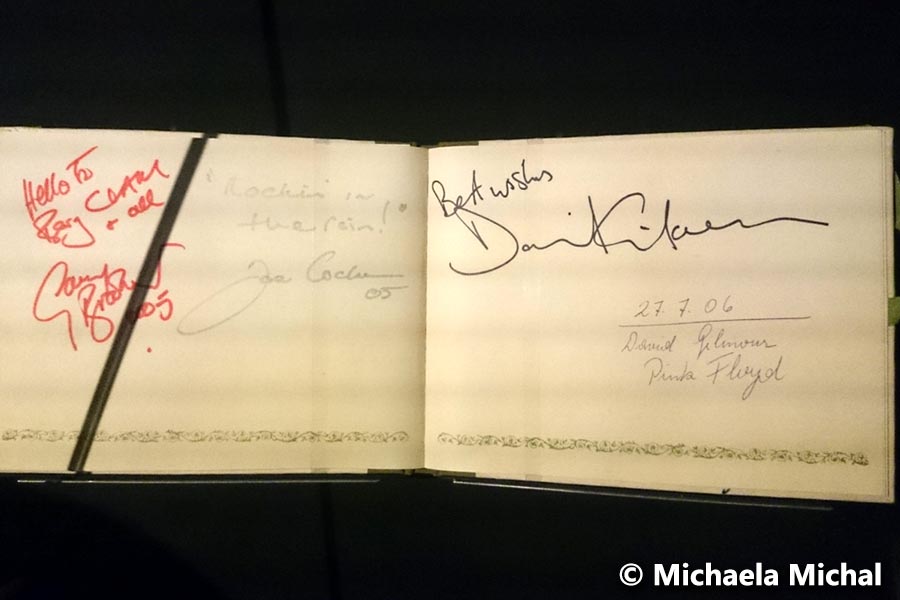 Hello To
+ all
"Rockin' in
the rain!"
Joe Cocker
05
Best wishes
David Gilmour
27.7.06
David Gilmour
Pink Floyd
© Michaela Michal